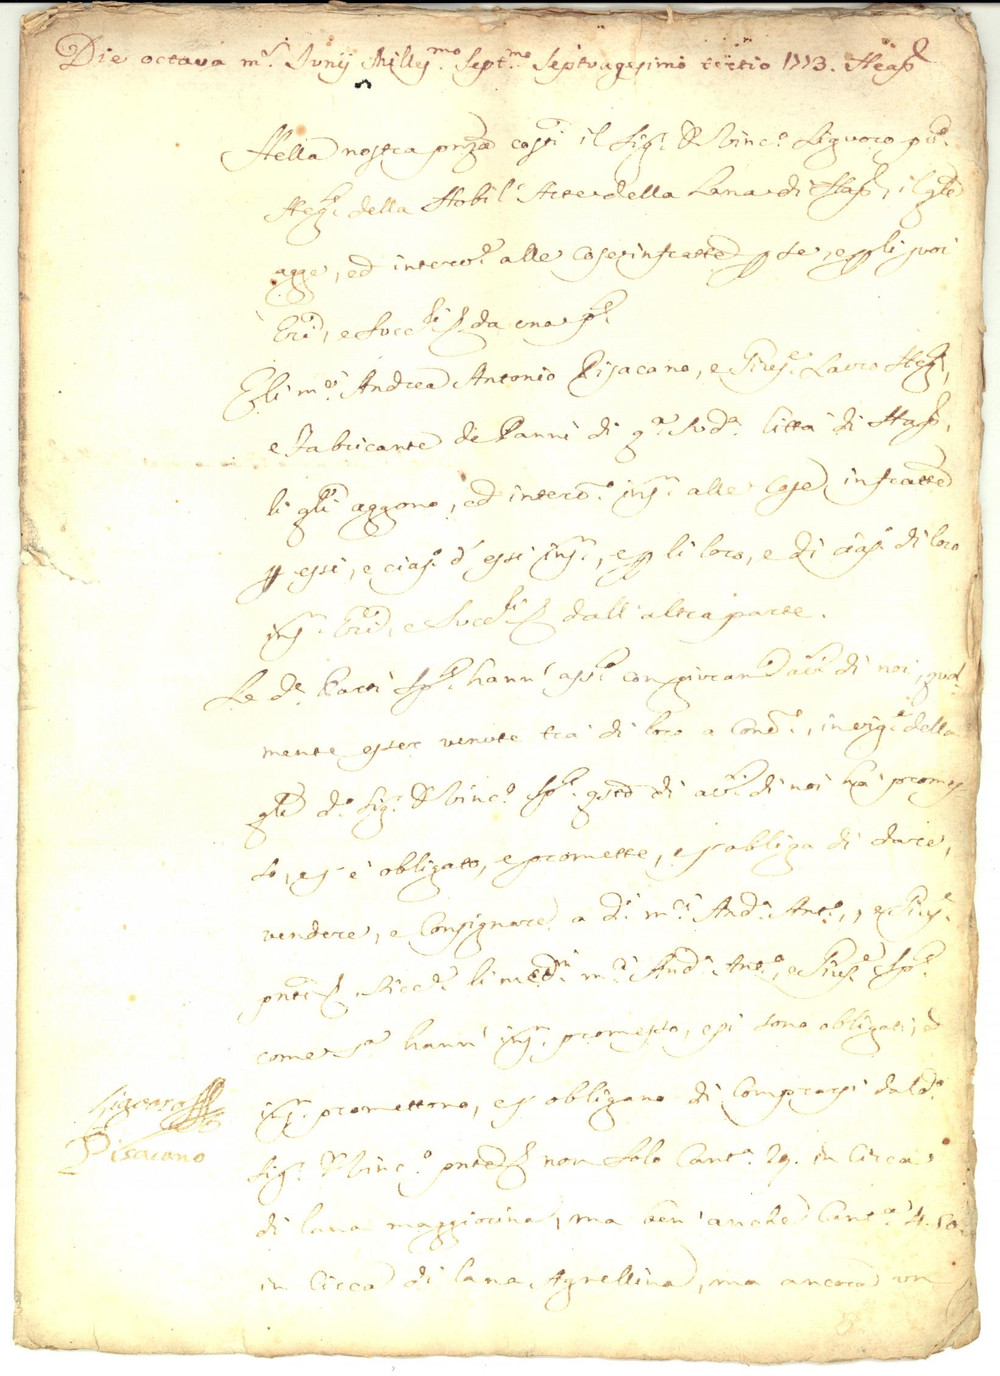 Die octava m.s Junij Mill.mo Sept.mo Septuagesimo tertio 1773. Neap
Nella nostra prnza costi il Sig.r D. Vinc.o Liguoro
Neg.e della Nobil' Arte della Lana di Nap, il qle
agge, ed interv.e alle cose infratte p se, e p li suoi
Eri, e Succ.ri da una p.e
E li m.ci Andrea Antonio Pisacano, e Gius.e Lauro Neg,
e Fabricante de Panni di q.a Sud.a Città di Nap,
li qli aggono, ed interv.o ins.m alle cose infratte
p essi, e cias.o d' essi ins.m, e p li loro, e di cias.o di loro
ins.m Eri, e Succ.ri dall'altra parte.
Le d.e Parti Sp.e hann' ass.o con giuram.o av.ti di noi,
mente esser venute trà di loro a Conv.e, in vig.e della
qle d.o Sig.r D. Vinc.o Sp.e av.ti di noi hà promes
so, e s' è obligato, e promette, e s' obliga di dare,
vendere, e Consignare a d.i m.ci And.a Ant.o, e Gius.e
pnti, Sicc.e li med.mi m.ci And.a Ant.o, e Gius.e Sp.e
come s.a hann' ins.m promesso, e si sono obligati, e
ins.m promettono, e s' obligano di Comprarsi dal d.o
Sig.r D. Vinc.o pnte non solo Cant.a 29. in Circa
di lana maggiorina, ma ben' anche Cant.a 4.50
in Circa di lana Agnellina, ma ancora un
Liguoro
Pisacano